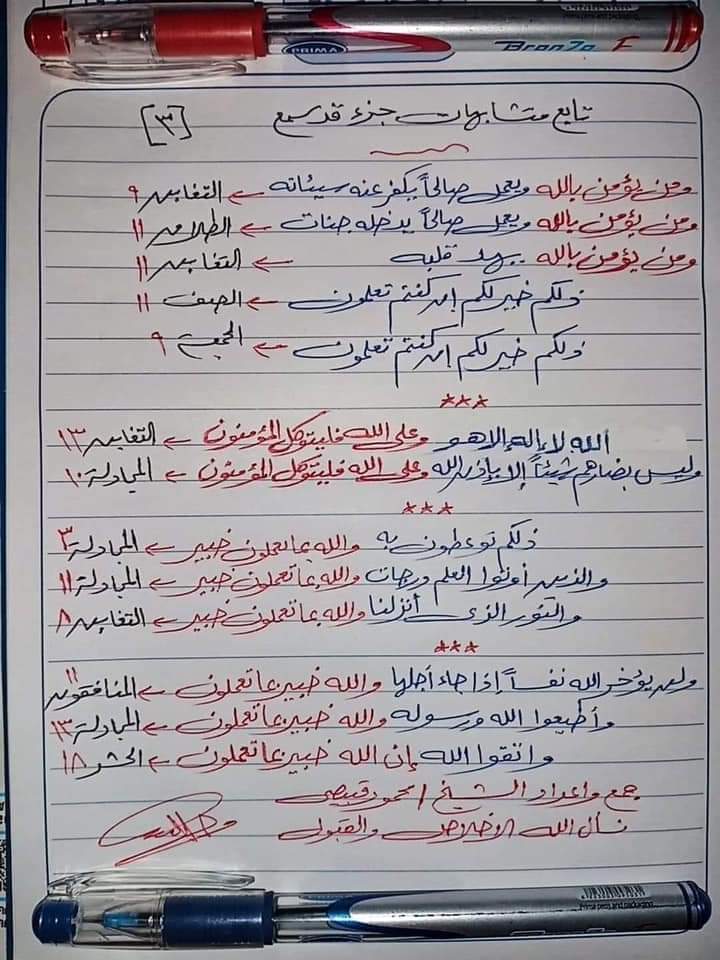 PRIMA
BronZo F
تابع متشابهات جزء قد سمع [٣]
ومن يؤمن بالله ويعمل صالحاً يكفر عنه سيئاته ← التغابن ٩
ومن يؤمن بالله ويعمل صالحاً يدخله جنات ← الطلاق ١١
ومن يؤمن بالله يهد قلبه ← التغابن ١١
ذلكم خير لكم إن كنتم تعلمون ← الصف ١١
ذلكم خير لكم إن كنتم تعلمون ← الجمعة ٩
***
الله لا إله إلا هو وعلى الله فليتوكل المؤمنون ← التغابن ١٣
وليس بضارهم شيئاً إلا بإذن الله وعلى الله فليتوكل المؤمنون ← المجادلة ١٠
***
ذلكم توعظون به والله بما تعملون خبير ← المجادلة ٣
والذين أوتوا العلم درجات والله بما تعملون خبير ← المجادلة ١١
والنور الذى أنزلنا والله بما تعملون خبير ← التغابن ٨
***
ولن يؤخر الله نفساً إذا جاء أجلها والله خبير بما تعملون ← المنافقون ١١
وأطيعوا الله ورسوله والله خبير بما تعملون ← المجادلة ١٣
واتقوا الله إن الله خبير بما تعملون ← الحشر ١٨
جمع وإعداد الشيخ / محمود قبيصى
نسأل الله الإخلاص والقبول